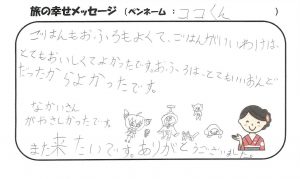 旅の幸せメッセージ (ペンネーム : ココくん )
ごはんもおふろもよくて、ごはんがいいわけは、
とてもおいしくてよかったです。おふろは、とてもいいおんど
だったからよかったです。
なかいさん
がやさしかったです。
また来たいです。ありがとうございました。